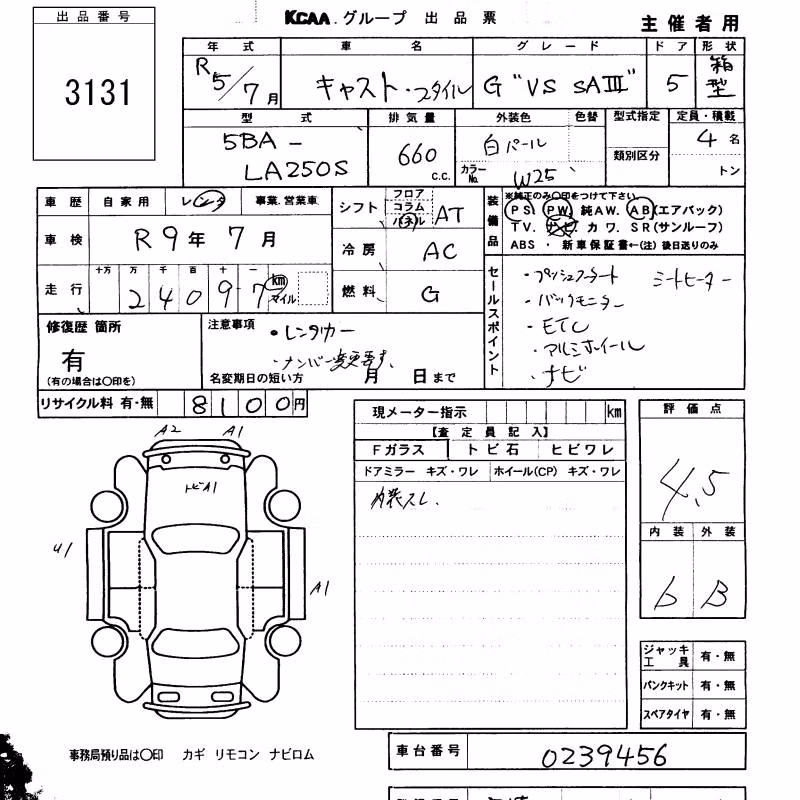 出品番号
3131
KCAA.グループ 出品票
主催者用
年式 車名 グレード ドア 形状
R5/7月 キャスト・スタイル G "VS SAⅢ" 5 箱型
型式 排気量 外装色 色替 型式指定 定員・積載
5BA-LA250S 660 c.c. 白パール 4名
カラーNo. W25 類別区分 トン
車歴 自家用 レンタ 事業.営業車
車検 R9年7月
走行 十万 万 千 百 十 一
24097 km マイル
シフト フロア コラム パネル AT
冷房 AC
燃料 G
装備品 ※純正のみ〇印をつけて下さい
PS PW 純AW. AB(エアバック)
TV. ナビ. カワ. SR(サンルーフ)
ABS ・ 新車保証書←(注)後日送りのみ
セールスポイント
・プッシュスタート シートヒーター
・バックモニター
・ETC
・アルミホイール
・ナビ
修復歴 箇所
有
(有の場合は〇印を)
注意事項
・レンタカー
・ナンバー変更要す、
名変期日の短い方 月 日まで
リサイクル料 有・無 8100円
現メーター指示 km
【査定員記入】
Fガラス トビ石 ヒビワレ
ドアミラー キズ・ワレ ホイール(CP) キズ・ワレ
内装スレ.
評価点
4.5
内装 外装
b B
A2 A1
トビA1
U1
A1
ジャッキ工具 有・無
パンクキット 有・無
スペアタイヤ 有・無
事務局預り品は〇印 カギ リモコン ナビロム
車台番号 0239456